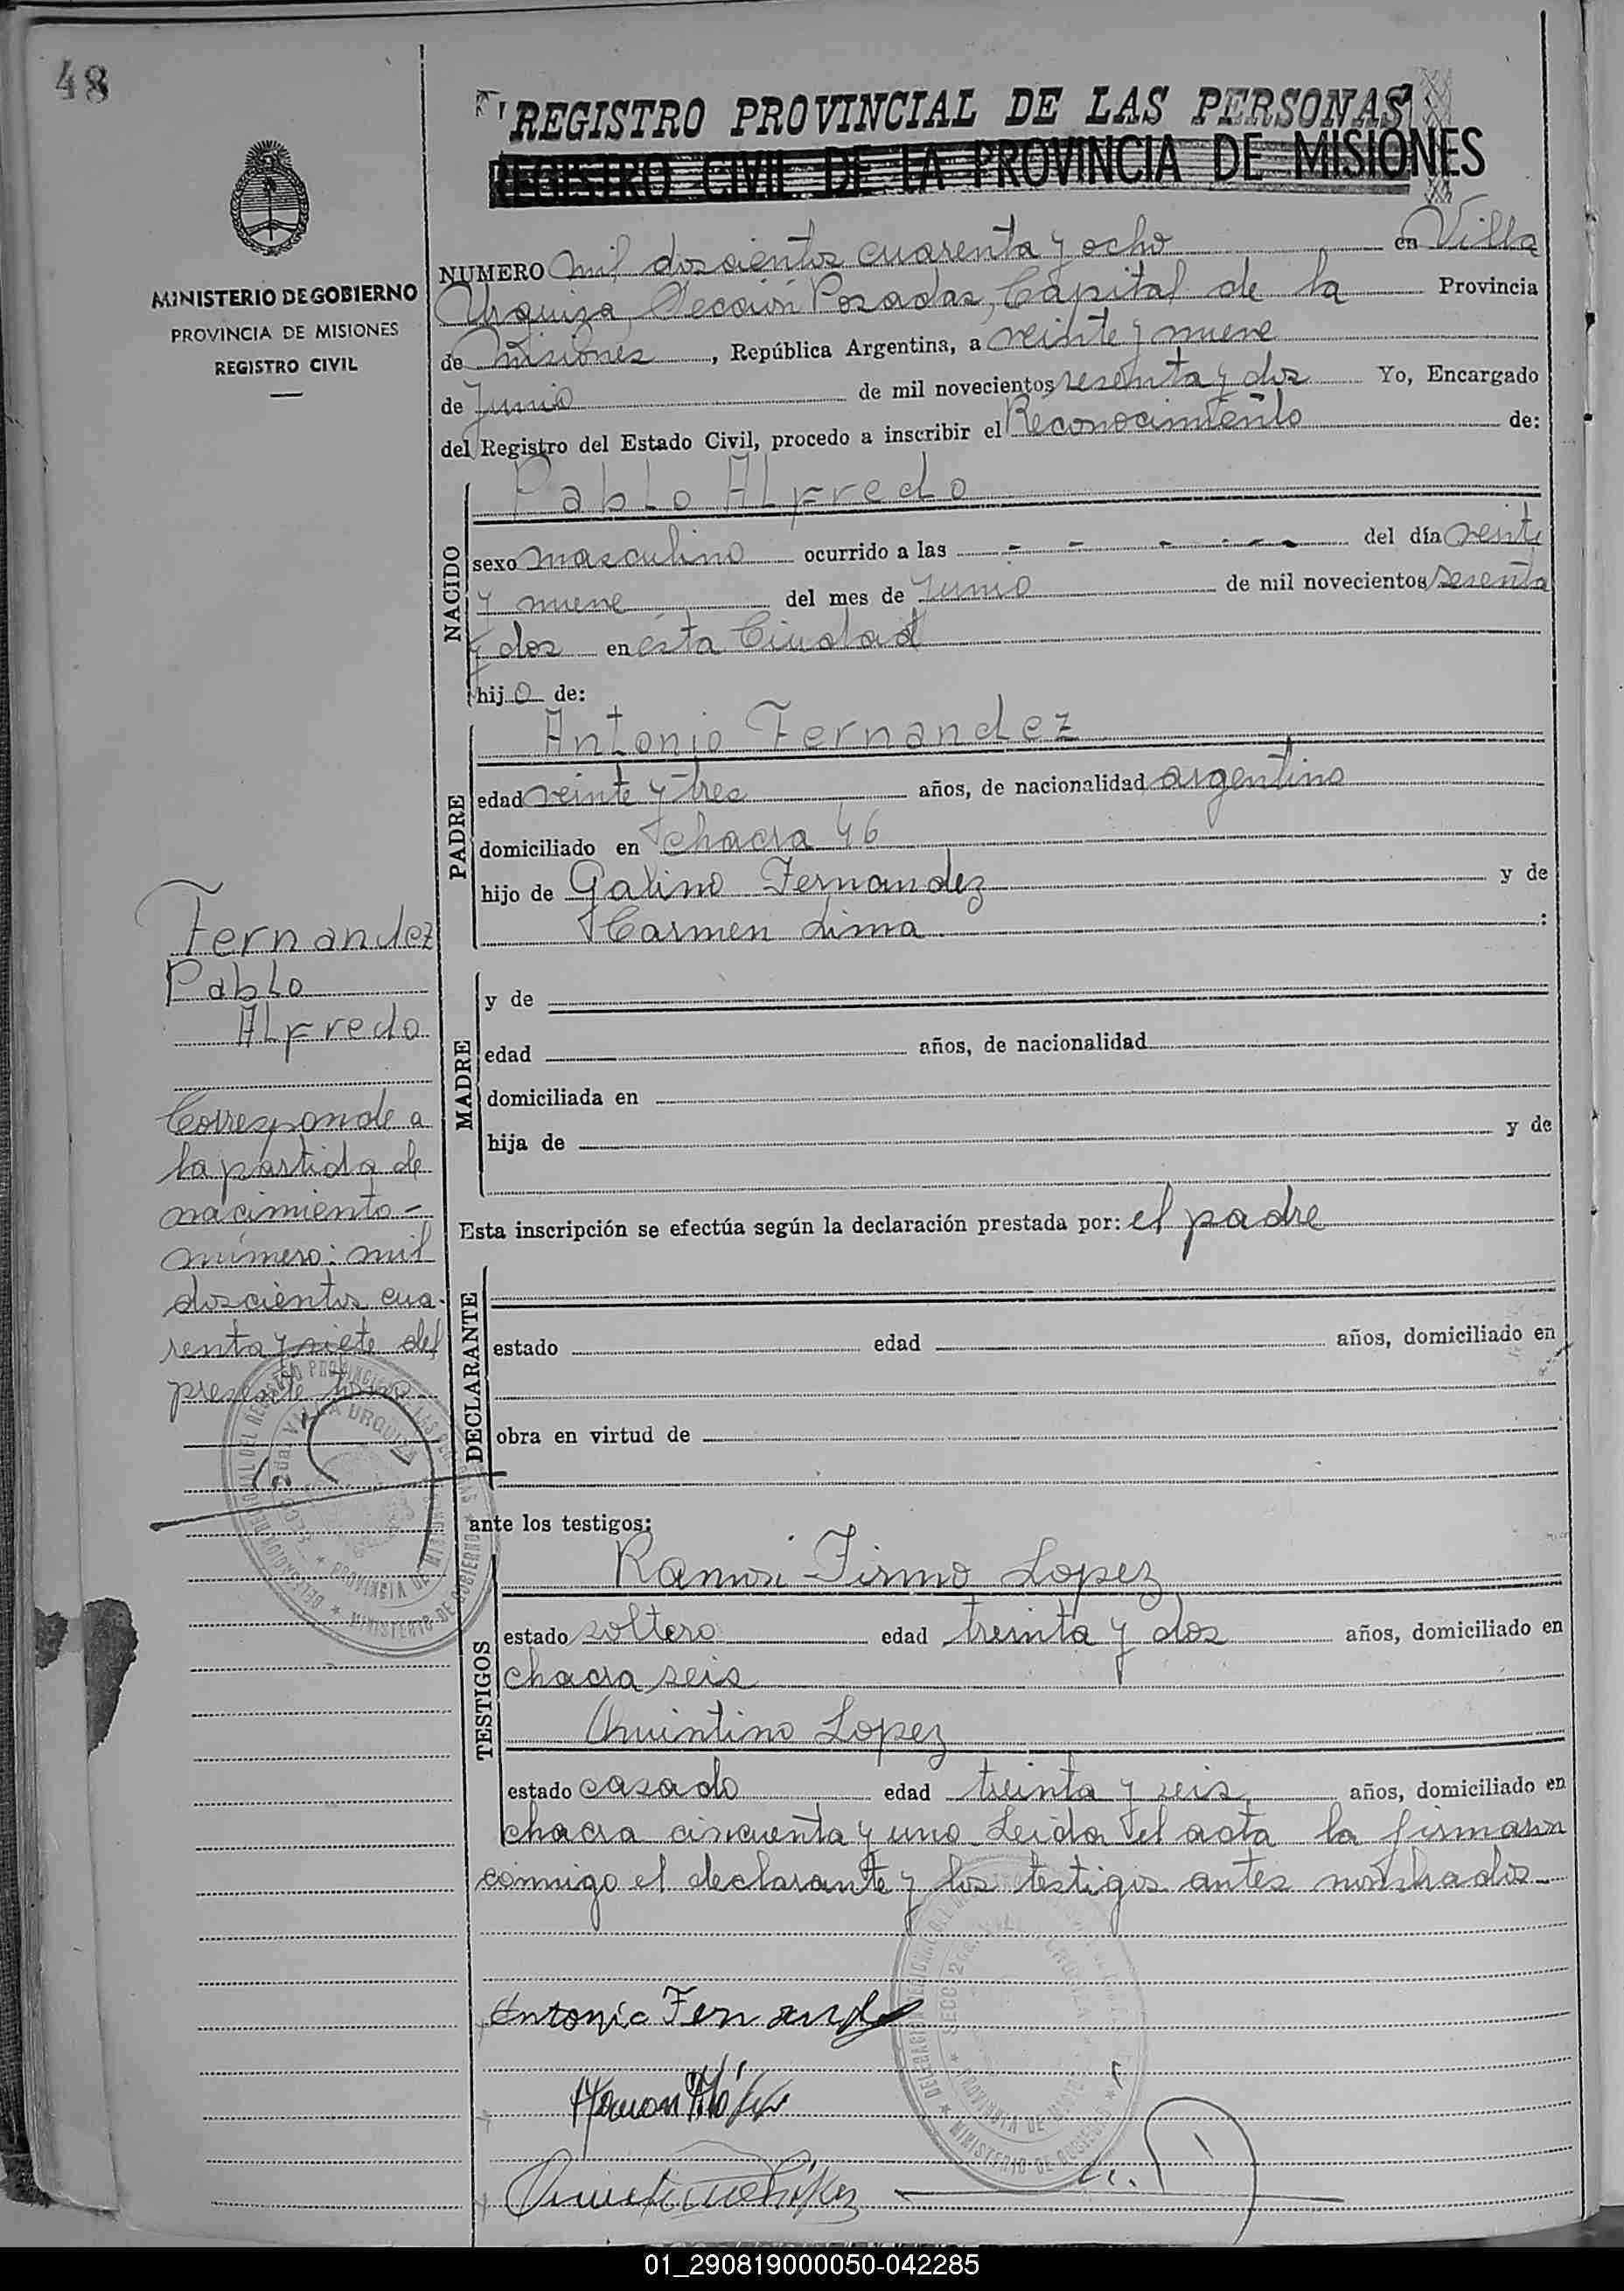 48
REGISTRO PROVINCIAL DE LAS PERSONAS
REGISTRO CIVIL DE LA PROVINCIA DE MISIONES
MINISTERIO DE GOBIERNO
PROVINCIA DE MISIONES
REGISTRO CIVIL
NUMERO mil doscientos cuarenta y ocho en Villa
Urquiza, Sección Posadas, Capital de la Provincia
de Misiones, República Argentina, a veinte y nueve
de Junio de mil novecientos sesenta y dos Yo, Encargado
del Registro del Estado Civil, procedo a inscribir el Reconocimiento de:
NACIDO
Pablo Alfredo
sexo masculino ocurrido a las - - - - - - del día veinte
y nueve del mes de Junio de mil novecientos sesenta
y dos en ésta Ciudad
hijo de:
PADRE
Antonio Fernandez
edad veinte y tres años, de nacionalidad argentino
domiciliado en chacra 46
hijo de Galino Fernandez y de
Carmen Lima :
MADRE
y de
edad años, de nacionalidad
domiciliada en
hija de y de
Esta inscripción se efectúa según la declaración prestada por: el padre
DECLARANTE
estado edad años, domiciliado en
obra en virtud de
ante los testigos:
TESTIGOS
Ramón Firmo Lopez
estado soltero edad treinta y dos años, domiciliado en
chacra seis
Quintino Lopez
estado casado edad treinta y seis años, domiciliado en
chacra cincuenta y uno. Leida el acta la firmaron
conmigo el declarante y los testigos antes nombrados
Antonio Fernandez
Fernandez
Pablo
Alfredo
Corresponde a
la partida de
nacimiento -
número: mil
doscientos cua-
renta y siete del
presente tomo
DELEGACION REGIONAL DEL REGISTRO PROVINCIAL DE LAS PERSONAS
SECC. 2da. VILLA URQUIZA
PROVINCIA DE MISIONES
MINISTERIO DE GOBIERNO
01_290819000050-042285